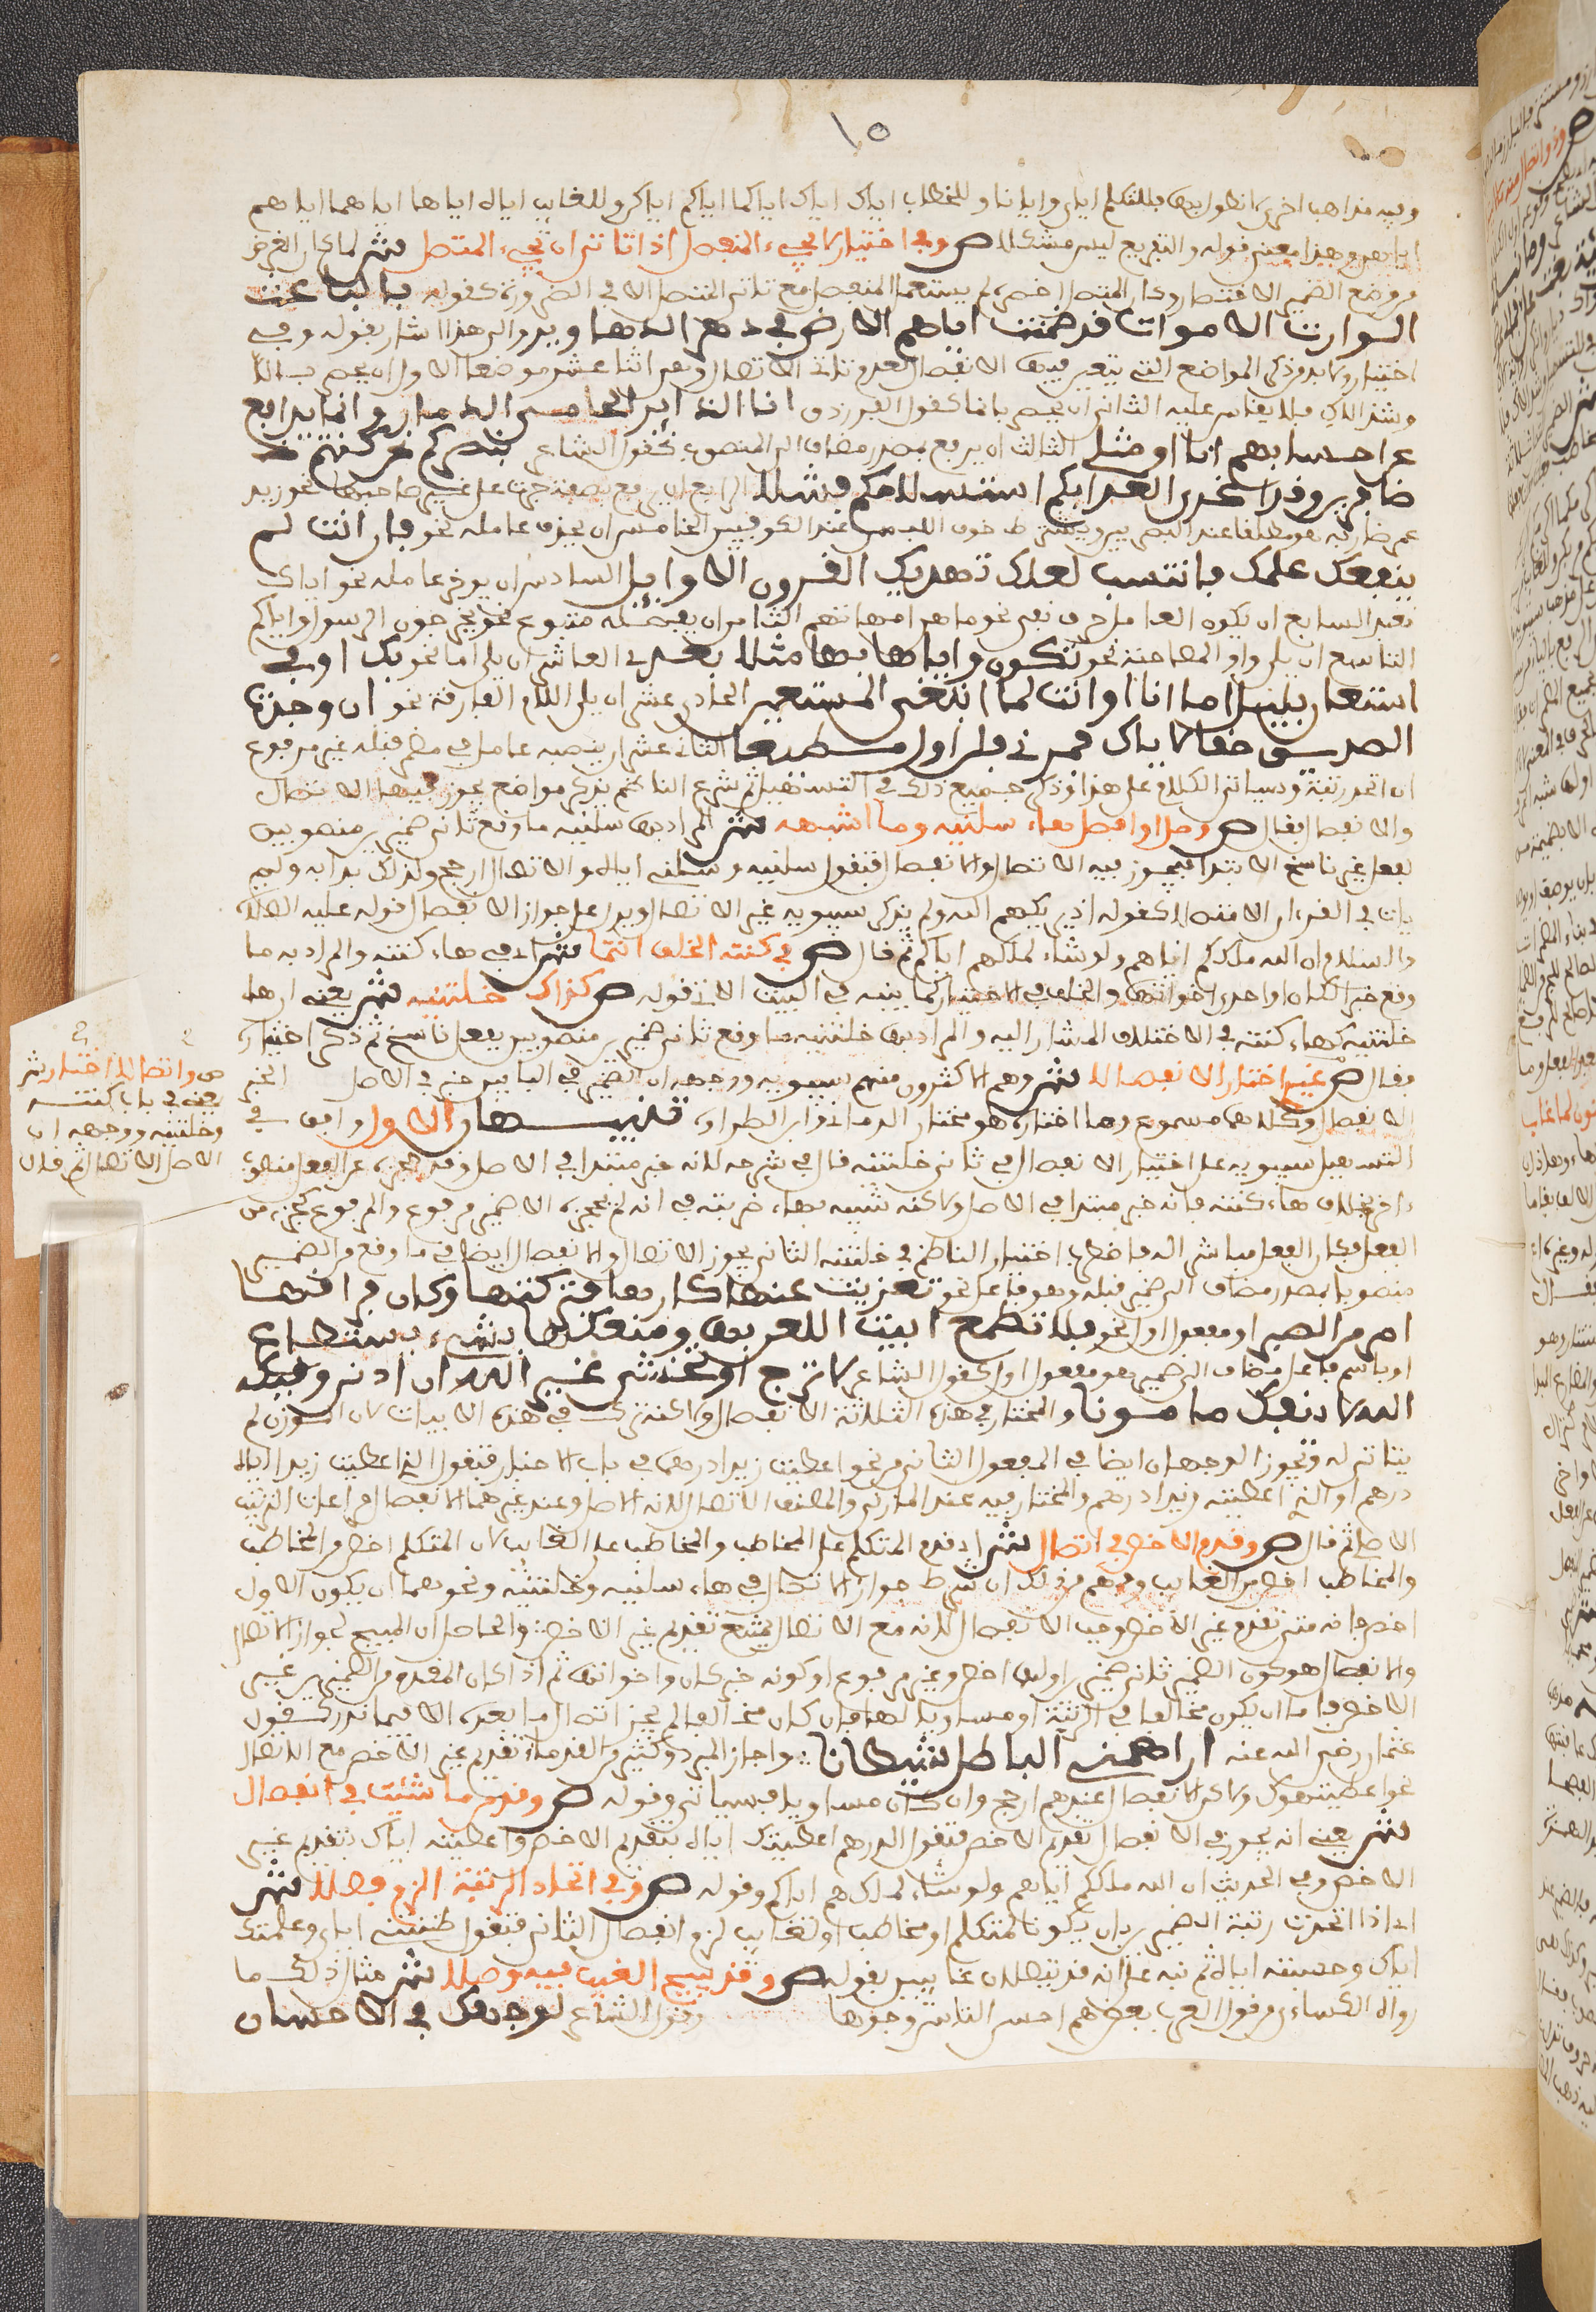 ١٥
وفيه مذاهب اخرى لا نطول بها فللمتكلم اياى وايانا وللمخاطب اياك اياك اياكما اياكم اياكن وللغايب اياه اياها اياهما اياهم
اياهن وهذا معنى قوله والتفريع ليس مشكلا ص وفى اختيار لا يجىء المنفصل اذا تاتى ان يجىء المتصل ش لما كان الغرض
من وضع الضمير الاختصار وكان المتصل اخصر لم يستعمل المنفصل مع تاتى المتصل الا فى الضرورة كقوله بالباعث
الوارث الاموات قد ضمنت اياهم الارض فى دهر الدهارير والى هذا اشار بقوله وفى
اختيار ولا بد من ذكر المواضع التى يتعين فيها الانفصال لعدم تاتى الاتصال وهى اثنا عشر موضعا الاول ان يحصر بالا
وشذ الاك فلا يقاس عليه الثانى ان يحصر بانما كقول الفرزدق انا الذايد الحامى الذمار وانما يدافع
عن احسابهم انا او مثلى الثالث ان يرفع بمصدر مضاف الى المنصوب كقول الشاعر بنصركم نحن كنتم
ظافرين وقد اغرى العدا بكم استسلامكم فشلا الرابع ان يرفع بصفة جرت على غير صاحبها نحو زيد
عمرو ضاربه هو مطلقا عند البصريين ويشترط خوف اللبس عند الكوفيين الخامس ان يحذف عامله نحو فان انت لم
ينفعك علمك فانتسب لعلك تهديك القرون الاوايل السادس ان يوخر عامله نحو اياك
نعبد السابع ان يكون العامل حرف نفى نحو ما هن امهاتهم الثامن ان يفصله متبوع نحو يخرجون الرسول واياكم
التاسع ان يلى واو المصاحبة نحو تكون واياها بها مثلا بعدى العاشر ان يلى اما نحو بك او بى
استعان فليل اما انا او انت لما ابتغى المستعين الحادى عشر ان يلى اللام الفارقة نحو ان وجدت
الصديق حقا لاياك فمرنى فلن ازال مطيعا الثانى عشر ان ينصبه عامل فى مضمر قبله غير مرفوع
ان اتحد رتبة وسياتى الكلام على هذا وذكر جميع ذلك فى التسهيل ثم شرع الناظم يذكر مواضع يجوز فيها الاتصال
والانفصال فقال ص وصل او افصل هاء سلنيه وما اشبهه ش المراد بهاء سلنيه ما وقع ثانى ضميرين منصوبين
بفعل غير ناسخ الابتدا فيجوز فيه الاتصال والانفصال فتقول سلنيه وسلنى اياه والاتصال ارجح ولذلك بدا به ولم
يات فى القرءان الا متصلا كقوله اذ يريكهم الله ولم يذكر سيبويه غير الاتصال ويدل على جواز الانفصال قوله عليه الصلاة
والسلام ان الله ملككم اياهم ولو شاء لملكهم اياكم ثم قال ص فى كنته الخلف انتما ش اى فى هاء كنته والمراد به ما
وقع خبرا لكان او احدى اخواتها والخلف فى الاختيار كما بينه فى البيت الاتى قوله ص كذاك خلتنيه ش يعنى ان هاء
خلتنيه كهاء كنته فى الاختلاف المشار اليه والمراد بهاء خلتنيه ما وقع ثانى ضميرين منصوبين بفعل ناسخ ثم ذكر اختياره
فقال ص غيرى اختار الانفصالا ش وهم الاكثرون منهم سيبويه ووجهه ان الضمير فى البابين خبر فى الاصل الخبر
الانفصال وكلاهما مسموع وما اختاره هو مختار الرمانى وابن الطراوة تنبيهان الاول وافق فى
التسهيل سيبويه على اختيار الانفصال فى ثانى خلتنيه قال فى شرحه لانه خبر مبتدا فى الاصل وقد حجزه عن الفعل منصوب
اخر بخلاف هاء كنته فانه خبر مبتدا فى الاصل ولاكنه شبيه بهاء ضربته فى انه لم يحجزه الا ضمير مرفوع والمرفوع كجزء من
الفعل فكان الفعل مباشر له فاختار الناظم فى خلتنيه الثانى يجوز الاتصال والانفصال ايضا فى ما وقع من الضمير
منصوبا بمصدر مضاف الى ضمير قبله وهو فاعل نحو تعزيت عنها كارها فتركتها وكان فراقيها
امر من الصبر او مفعول اول نحو فلا تطمع ابيت اللعن فيها ومنعكها بشىء يستطاع
او باسم فاعل مضاف الى ضمير هو مفعول اول كقول الشاعر لا ترج او تخش غير الله ان اذى واقيكه
الله لا ينفك مامونا والمختار فى هذه الثلاثة الانفصال ولاكنه ترك فى هذه الابيات لان الوزن لم
يتات له ويجوز الوجهان ايضا فى المفعول الثانى من نحو اعطيت زيدا درهما فى باب الاخبار فتقول الذى اعطيت زيدا اياه
درهم او الذى اعطيته زيدا درهم والمختار فيه عند المازنى والمصنف الاتصال لانه الاصل وعند غيرهما الانفصال مراعاة لترتيب
الاصل ثم قال ص وقدم الاخص فى اتصال ش اى قدم المتكلم على المخاطب والمخاطب على الغايب لان المتكلم اخص من المخاطب
والمخاطب اخص من الغايب وفهم من ذلك ان شرط جواز الاتصال فى هاء سلنيه وخلتنيه ونحوهما ان يكون الاول
اخص فانه متى تقدم غير الاخص وجب الانفصال لانه مع الاتصال يمتنع تقديم غير الاخص والحاصل ان المبيح لجواز الاتصال
والانفصال هو كون الضمير ثانى ضميرين اولهما اخص وغير مرفوع او كونه خبر كان واخواتها ثم اذا كان المقدم من الضميرين غير
الاخص فاما ان يكون مخالفا فى الرتبة او مساويا لها فان كان مخالفا لم يجز اتصال ما بعده الا فيما ندر كقول
عثمان رضى الله عنه اراهمنى الباطل شيطانا واجاز المبرد وكثير من القدماء تقديم غير الاخص مع الاتصال
نحو اعطيتهوك ولاكن الانفصال عندهم ارجح وان كان مساويا فسياتى وقوله ص وقدم ما شئت فى انفصال
ش يعنى انه يجوز فى الانفصال تقديم الاخص فتقول الدرهم اعطيتك اياه بتقديم الاخص واعطيته اياك بتقديم غير
الاخص وفى الحديث ان الله ملككم اياهم ولو شاء لملكهم اياكم وقوله ص وفى اتحاد الرتبة الزم فصلا ش
اى اذا اتحدت رتبة الضميرين بان يكونا لمتكلم او مخاطب او لغايب لزم انفصال الثانى فتقول ظننتنى اياى وعلمتك
اياك وحسبته اياه ثم نبه على انه قد يتصلان غايبين بقوله ص وقد يبيح الغيب فيه وصلا ش مثال ذلك ما
رواه الكساءى من قول العرب بعض هم احسن الناس وجوها وقول الشاعر لوجهك فى الاحسان
ص واتصالا اختار ش
يعنى فى باب كنته
وخلتنيه ووجهه ان
الاصل الاتصال ثم قال